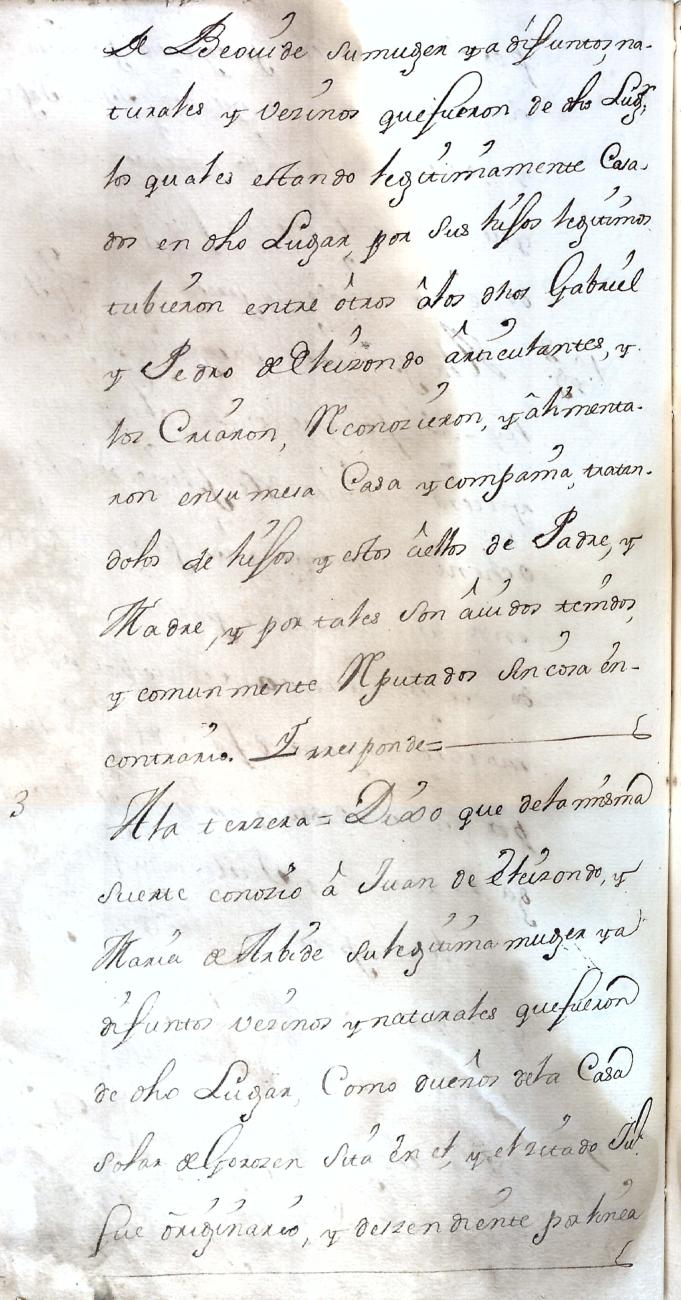 de Beouide su muger ya difuntos, na-
turales y vezinos que fueron de dho Lugr,
los quales estando legitimamente Casa-
dos en dho Lugar, por sus hijos legitimos
tubieron entre ôtros âlos dhos Gabriel
y Pedro de Eleizondo ârticulantes, y
los Criaron, Reconozieron, y âlimenta-
ron en su mesa Casa y compañia, tratan-
dolos de hijos y estos âellos de Padre, y
Madre, y por tales son âuidos tenidos,
y comunmente Reputados sin cosa en-
contrario. Y rresponde=
3 A la terzera= Dixo que dela misma
suerte conozio â Juan de Eleizondo, y
Maria de Arbide su legitima muger ya
difuntos vezinos y naturales que fueron
de dho Lugar, Como dueños dela Casa
solar de Gorozen sita ên el, y el zitado Jul.
fue ôriginario, y deszendiente por linea